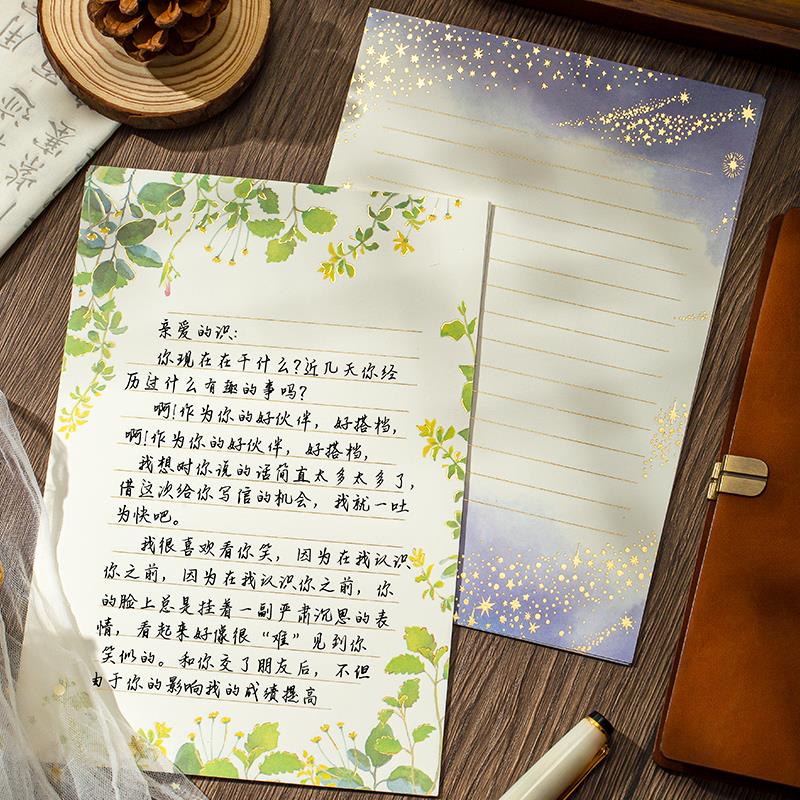 亲爱的识：
你现在在干什么？近几天你经
历过什么有趣的事吗？
啊！作为你的好伙伴，好搭档，
啊！作为你的好伙伴，好搭档，
我想对你说的话简直太多太多了，
借这次给你写信的机会，我就一吐
为快吧。
我很喜欢看你笑，因为在我认识
你之前，因为在我认识你之前，你
的脸上总是挂着一副严肃沉思的表
情，看起来好像很“难”见到你
笑似的。和你交了朋友后，不但
由于你的影响我的成绩提高